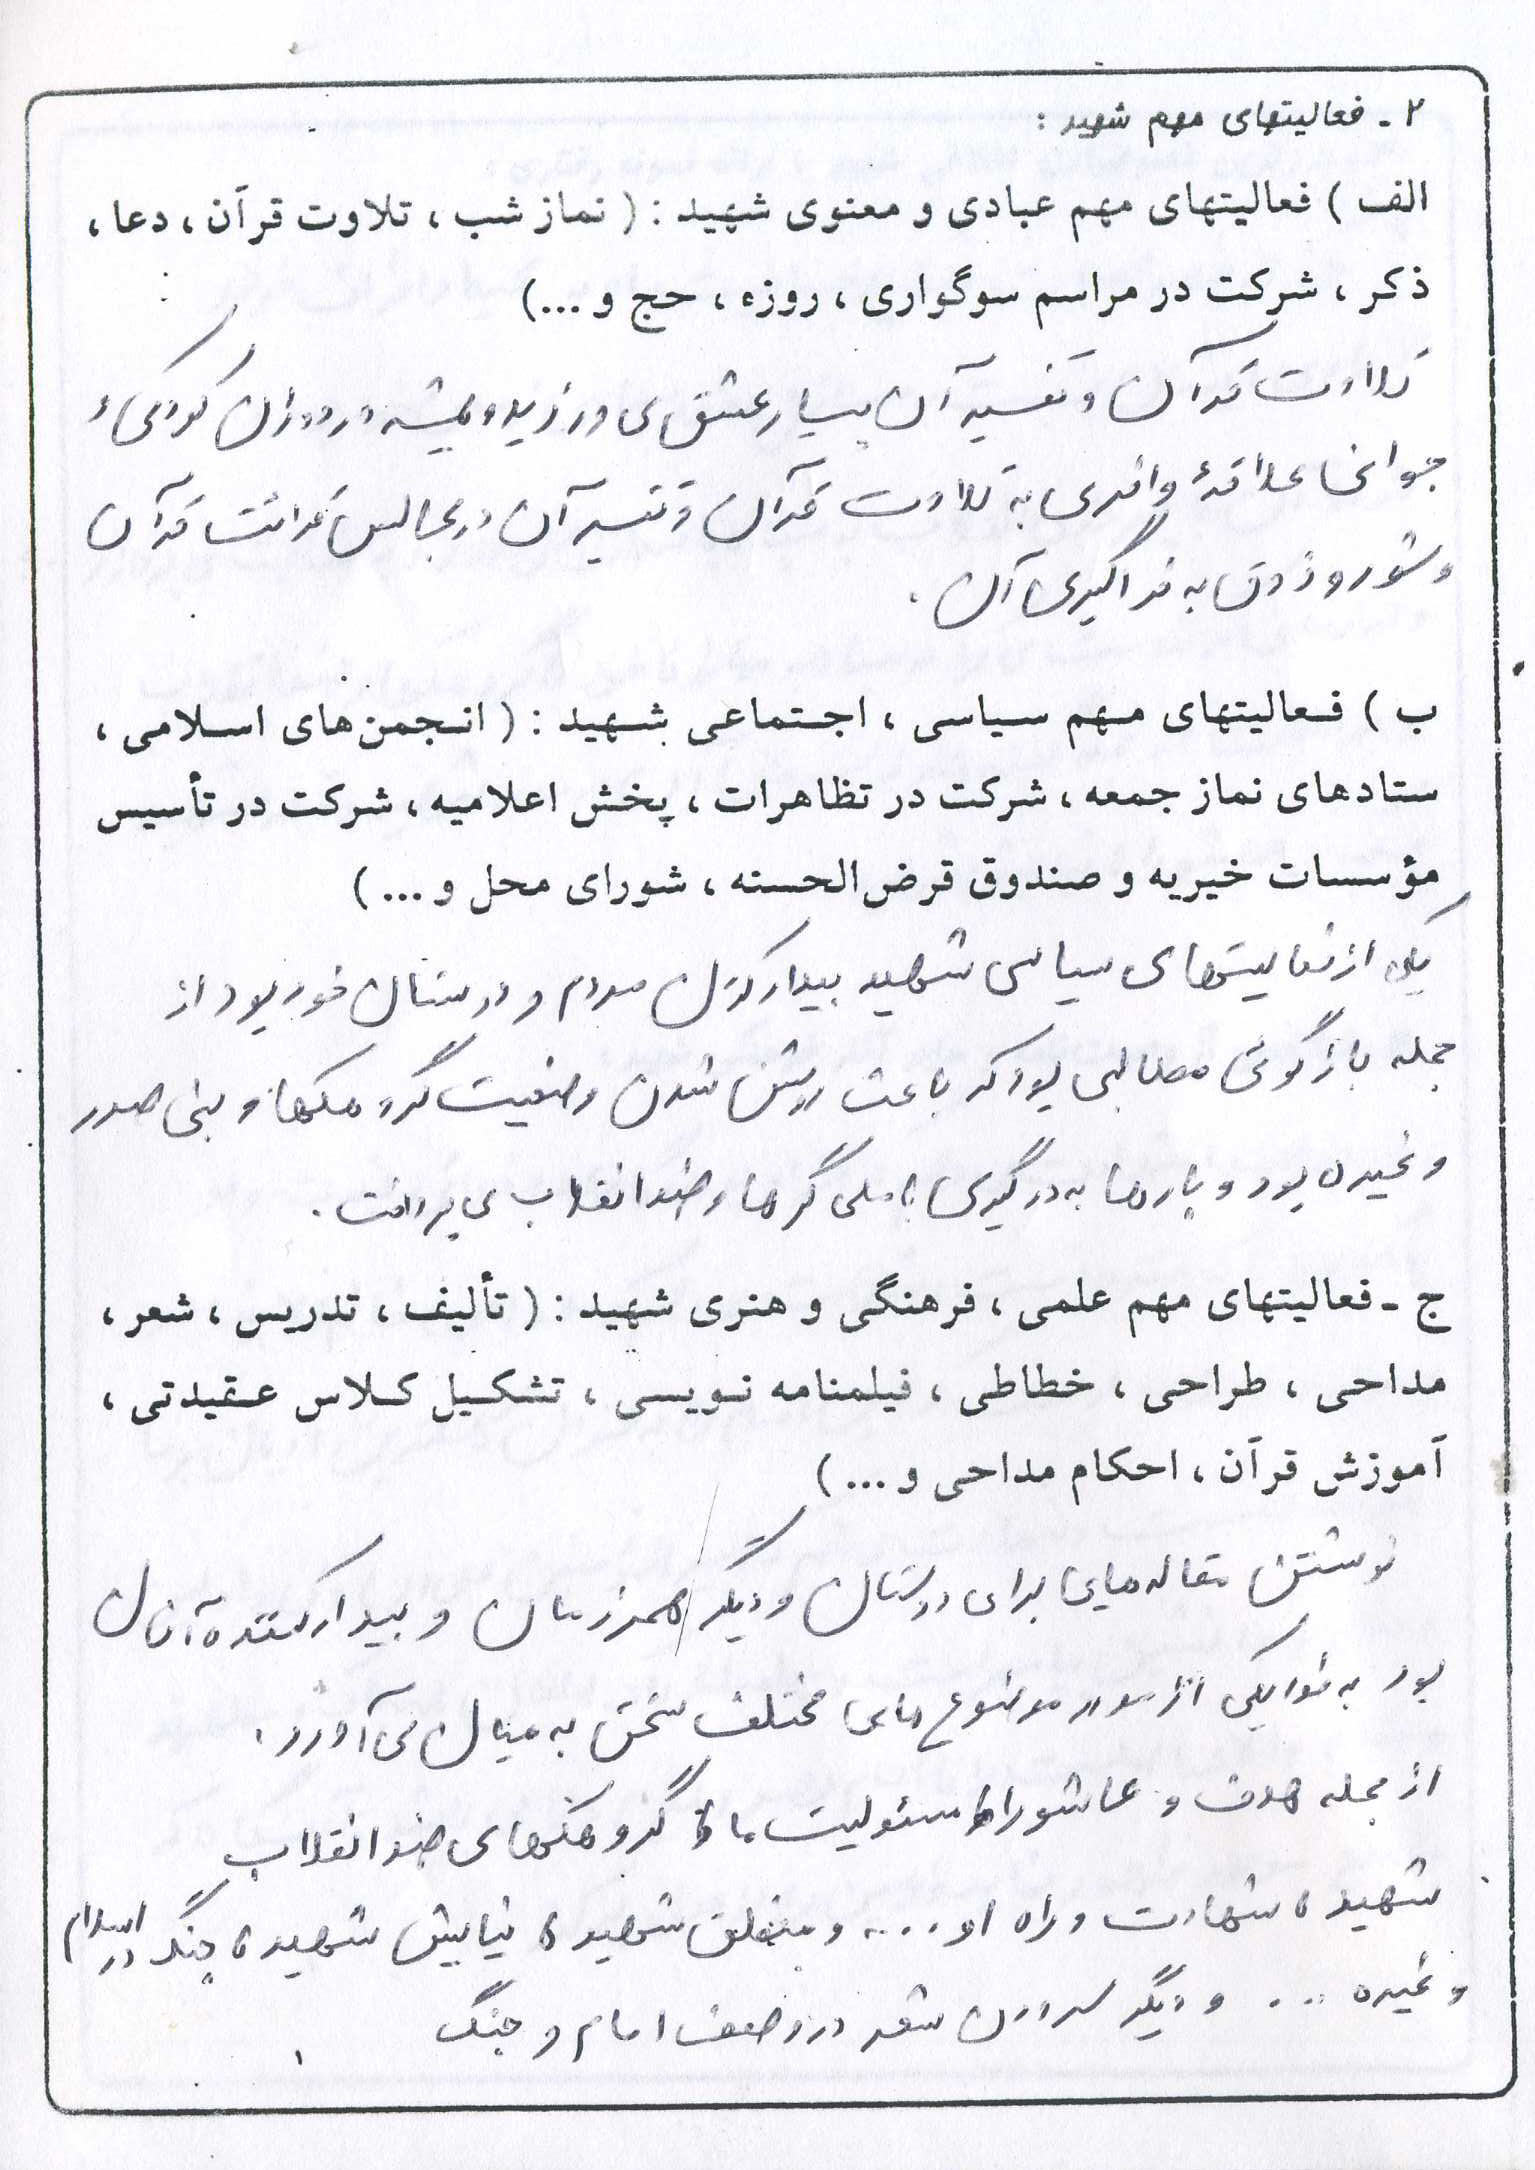 ۲ - فعالیتهای مهم شهید :
الف ) فعالیتهای مهم عبادی و معنوی شهید : ( نماز شب ، تلاوت قرآن ، دعا ،
ذکر ، شرکت در مراسم سوگواری ، روزه ، حج و ...)
تلاوت قرآن و تفسیر آن بسیار عشق می ورزید و همیشه در دوران کودکی و
جوانی علاقهٔ وافری به تلاوت قرآن و تفسیر آن در مجالس قرائت قرآن
و شور و ذوق به فراگیری آن .
ب ) فعالیتهای مهم سیاسی ، اجتماعی شهید : ( انجمن‌های اسلامی ،
ستادهای نماز جمعه ، شرکت در تظاهرات ، پخش اعلامیه ، شرکت در تأسیس
مؤسسات خیریه و صندوق قرض‌الحسنه ، شورای محل و ... )
یکی از فعالیتهای سیاسی شهید بیدار کردن مردم و دوستان خود بود از
جمله بازگوئی مطالبی بود که باعث روشن شدن وضعیت گروهکها و بنی صدر
و غیره بود و بارها به درگیری با ملی گرها و ضد انقلاب می پرداخت .
ج - فعالیتهای مهم علمی ، فرهنگی و هنری شهید : ( تألیف ، تدریس ، شعر ،
مداحی ، طراحی ، خطاطی ، فیلمنامه نویسی ، تشکیل کلاس عقیدتی ،
آموزش قرآن ، احکام مداحی و ... )
نوشتن مقاله‌هایی برای دوستان و دیگر همرزمان و بیدار کننده آنان
بود به موضوع های مختلف سخن به میان می آورد .
از جمله هدف و عاشورا مسئولیت ما گروهکهای ضد انقلاب
شهید ، شهادت و راه او .... و شهید ، نیایش شهید ، جنگ در اسلام
و غیره ... و دیگر سرودن شعر در وصف امام و جنگ